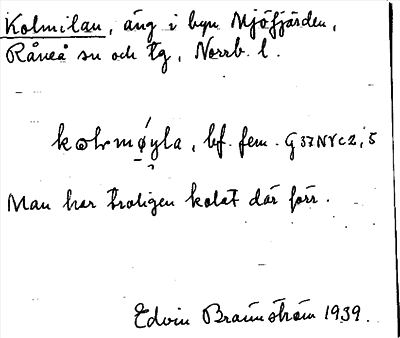 Kolmilan, äng i byn Mjöfjärden,
Råneå sn och tg, Norrb. l.
kolmǿyla, bf. fem. G37NYC2,5
Man har troligen kolat där förr.
Edvin Brännström 1939.